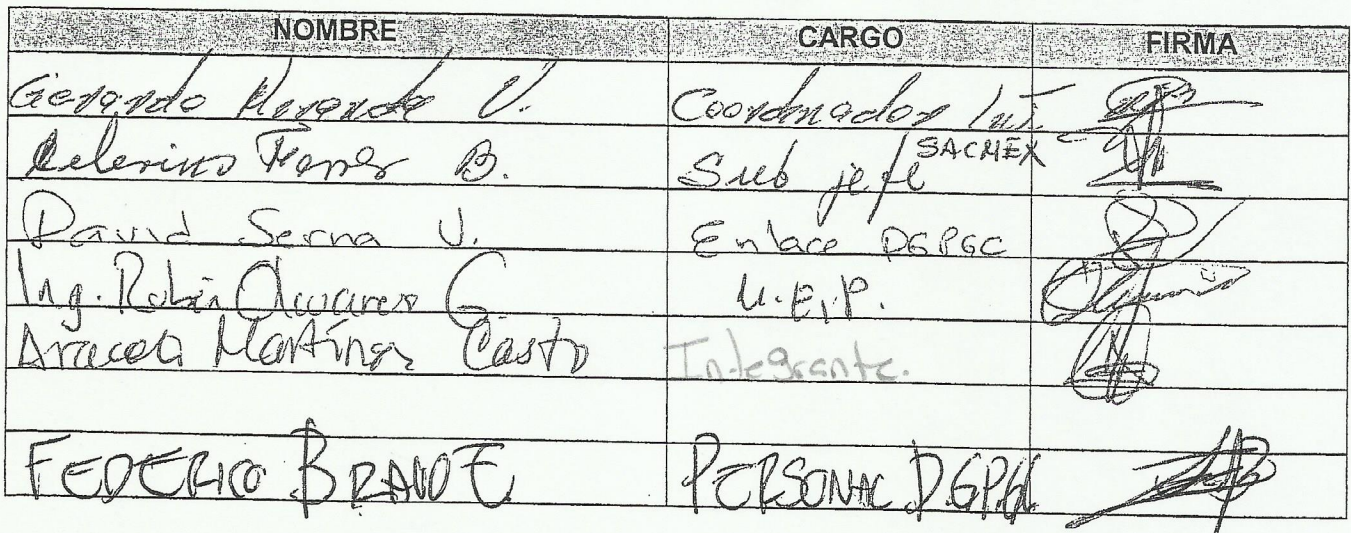 NOMBRE CARGO FIRMA
Gerardo Miranda V. Coordinador Int.
Celerino Ferrer B. Sub jefe SACMEX
David Serna V. Enlace DGPGC
Ing. Rubén Olivares G. U.E.P.
Araceli Martínez Castro Integrante.
FEDERICO BRAVO E. PERSONAL DGPGC